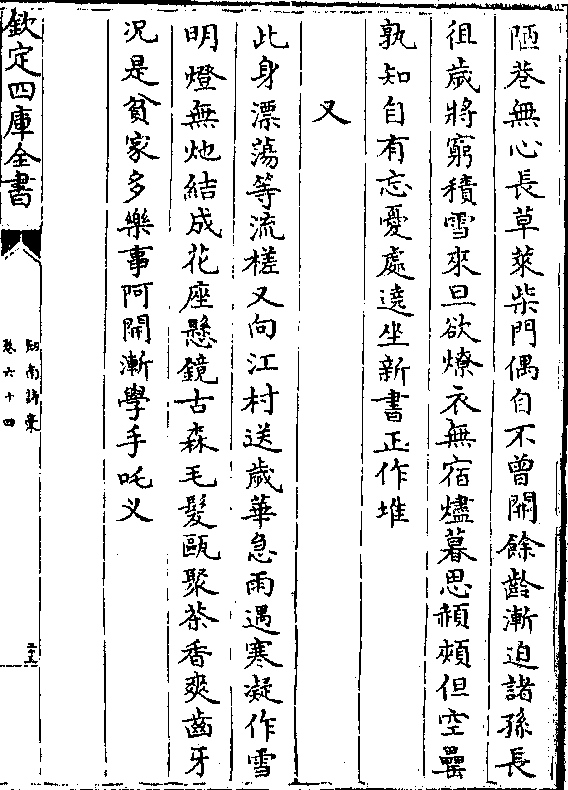 陋巷無心長草萊柴門偶自不曾開餘齡漸迫諸孫長
徂歲將窮積雪來旦欲燎衣無宿燼暮思頳頰但空罍
孰知自有忘憂處遶坐新書正作堆
又
此身漂蕩等流槎又向江村送歲華急雨遇寒凝作雪
明燈無灺結成花座懸鏡古森毛髮甌聚茶香爽齒牙
況是貧家多樂事阿開漸學手吒义
欽定四庫全書
劒南詩稾
卷六十四